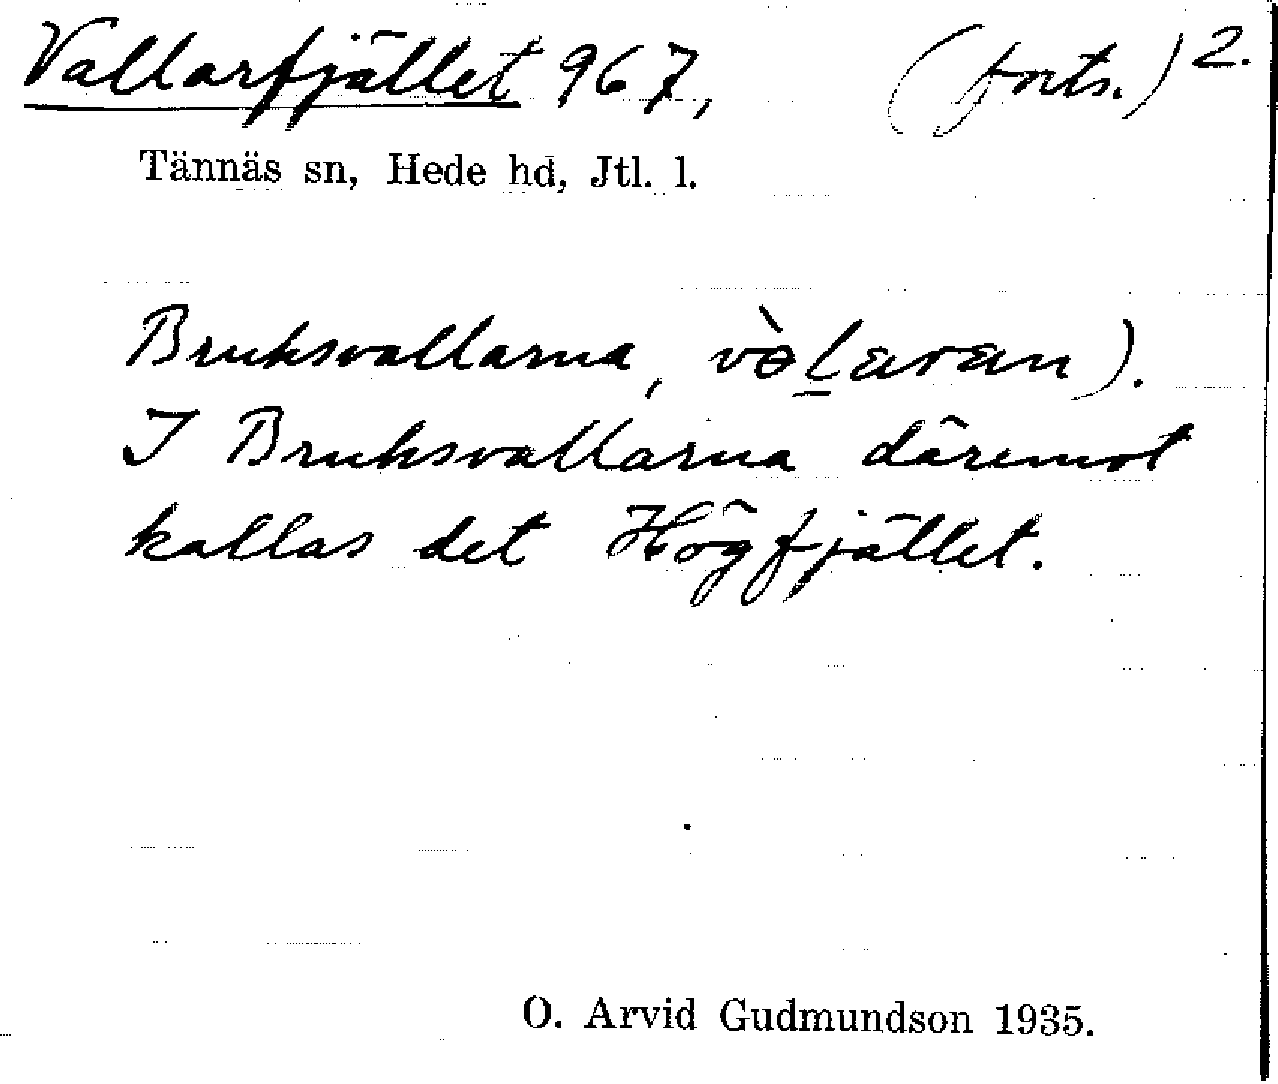 Vallarfjället 967, (forts.) 2.
Tännäs sn, Hede hd, Jtl. l.
Bruksvallarna, vàlaran).
I Bruksvallarna däremot
kallas det Högfjället.
O. Arvid Gudmundson 1935.